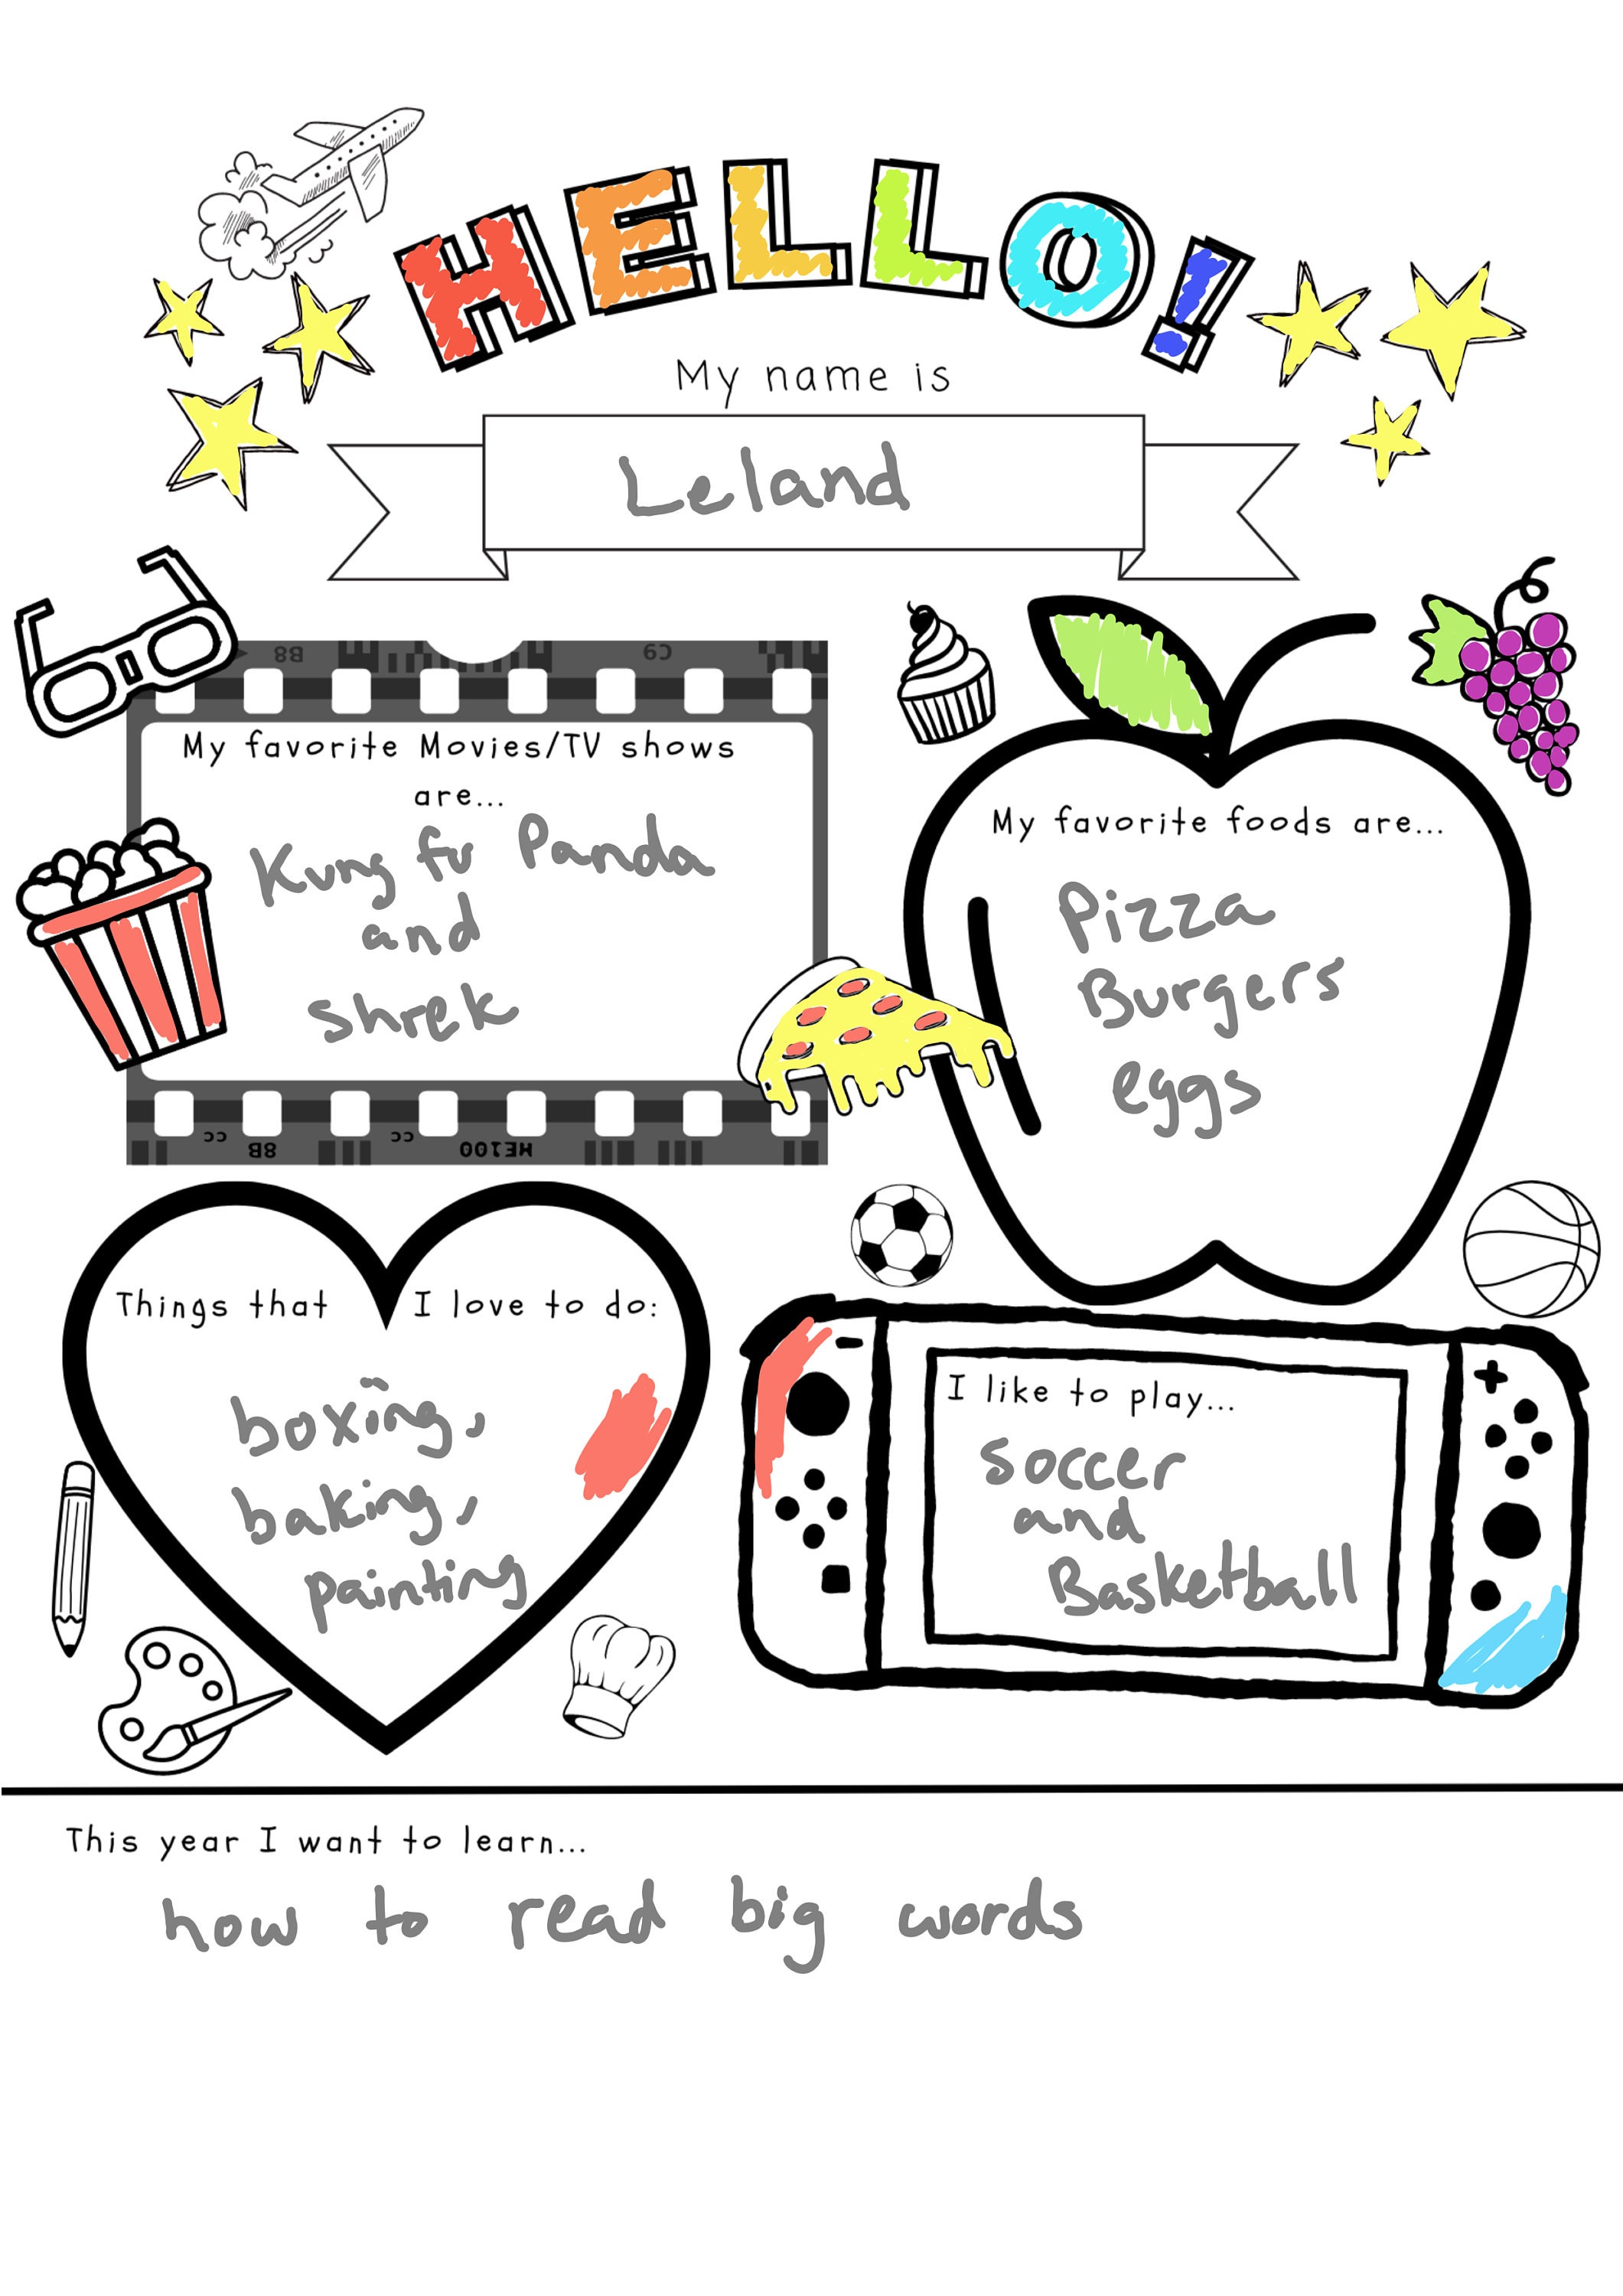 HELLO!
My name is
Leland
My favorite Movies/TV shows
are...
Kung fu Panda
and
Shrek
My favorite foods are...
Pizza
Burgers
eggs
Things that I love to do:
boxing,
baking,
painting
I like to play...
soccer
and
Basketball
This year I want to learn...
how to read big words